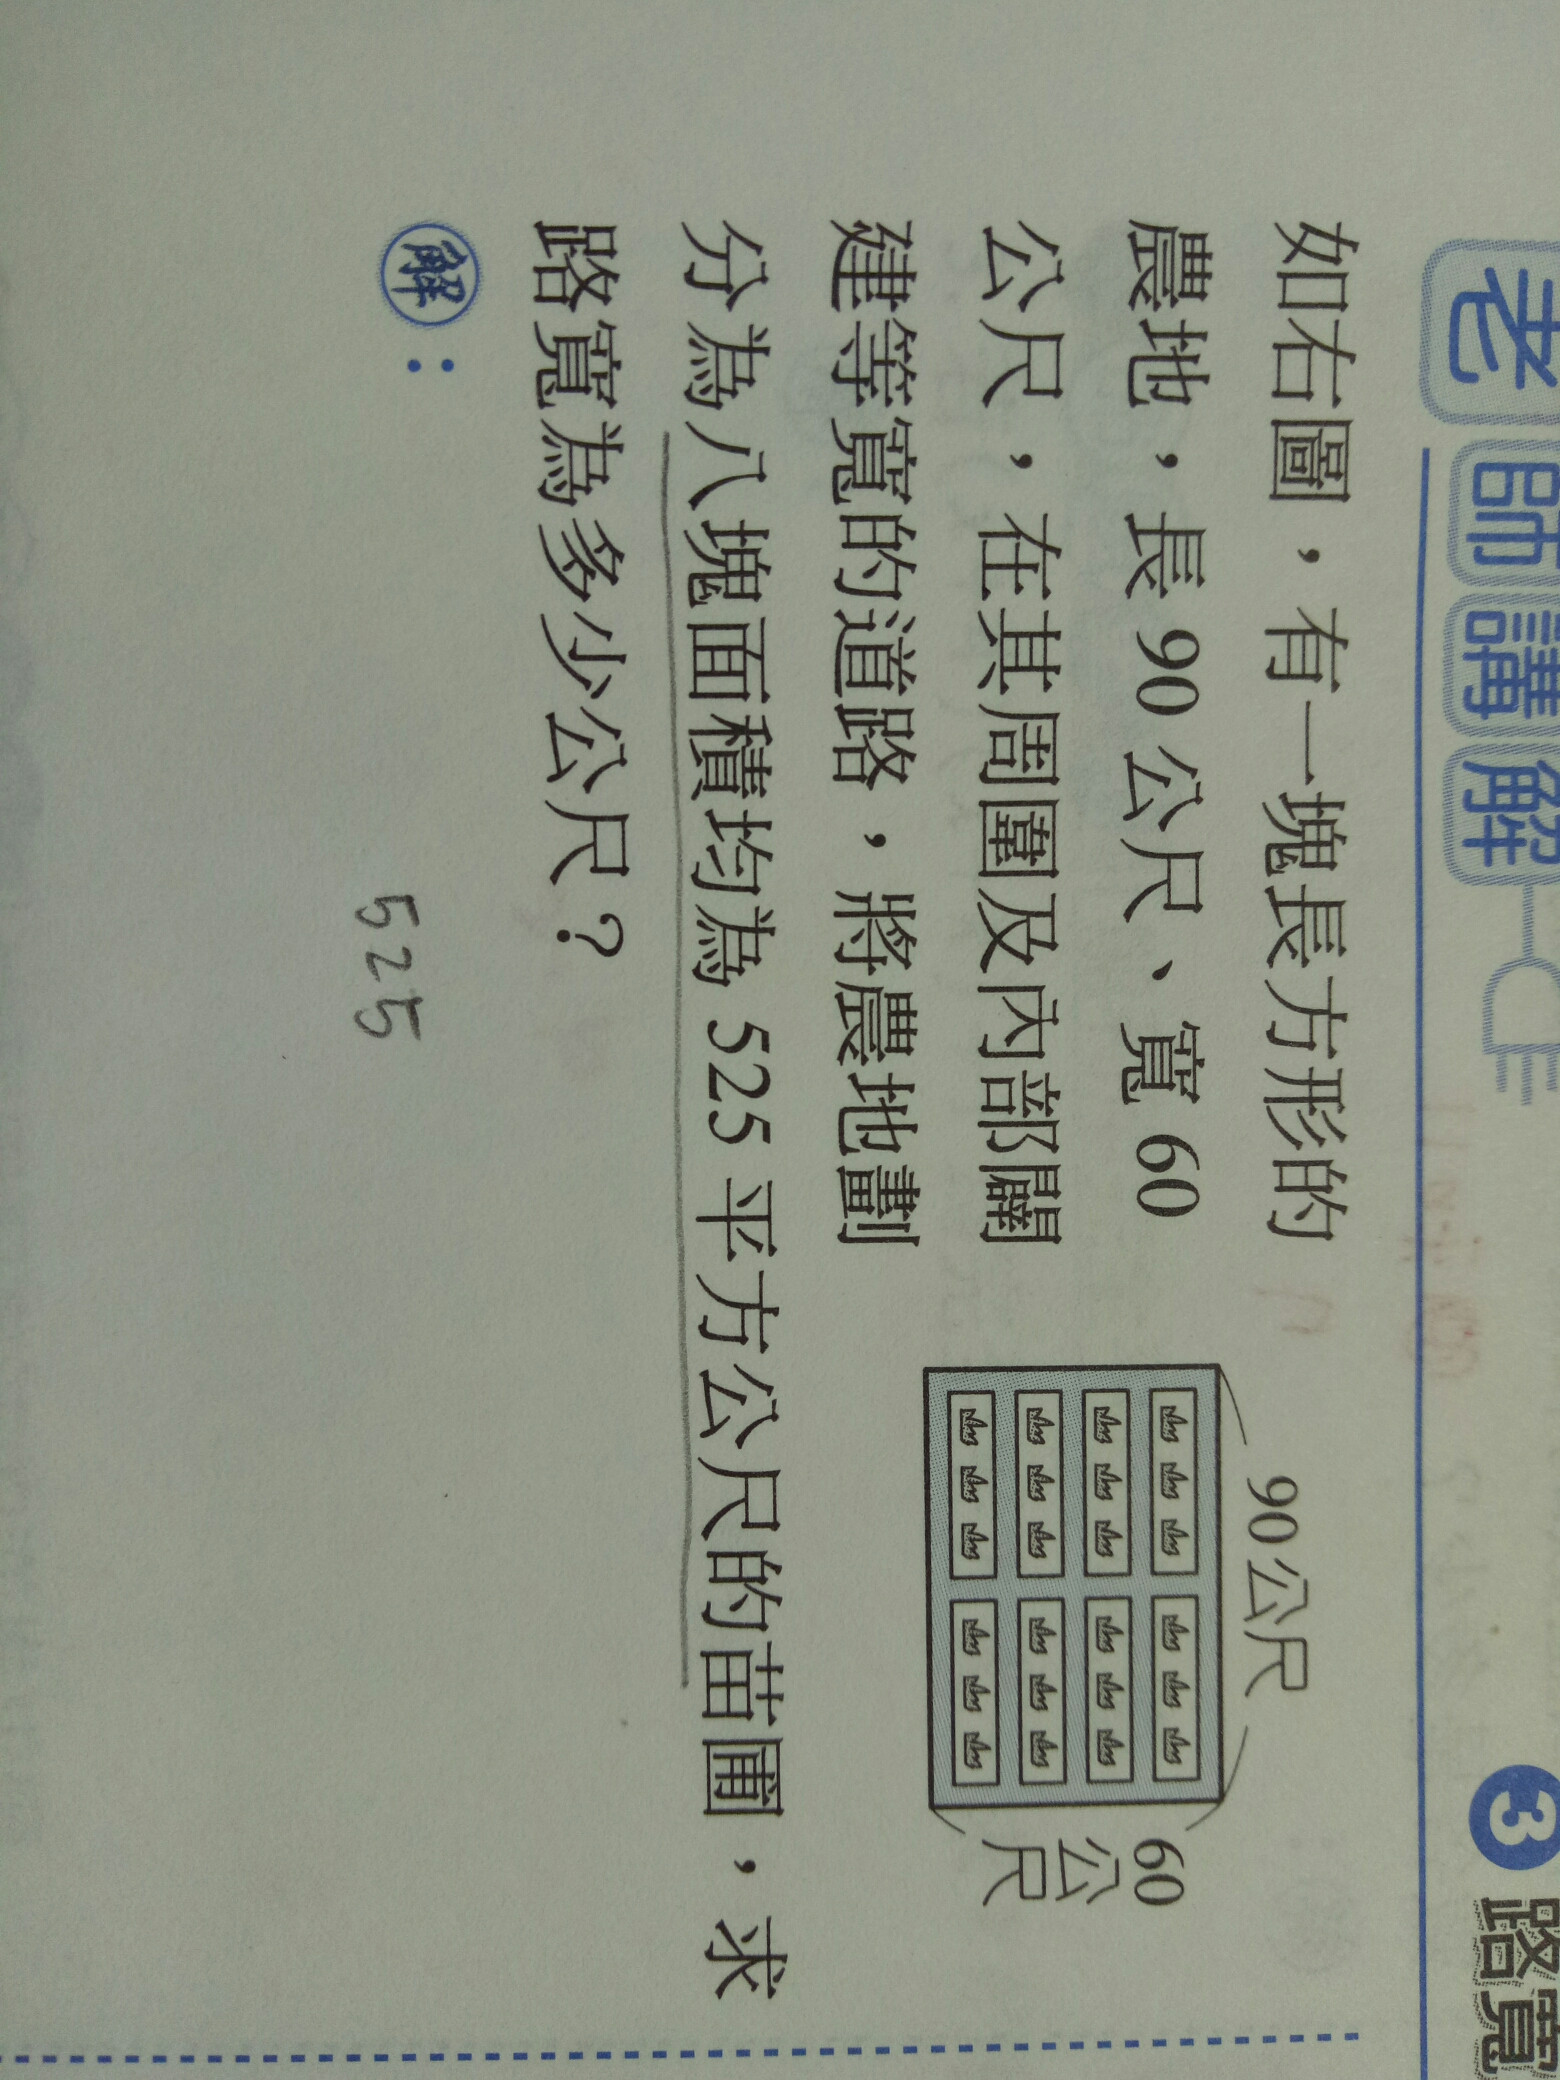 老師講解
3 路寬
如右圖，有一塊長方形的
農地，長 90 公尺、寬 60
公尺，在其周圍及內部闢
建等寬的道路，將農地劃
分為八塊面積均為 525 平方公尺的苗圃，求
路寬為多少公尺？
90公尺
60
公
尺
解：
525